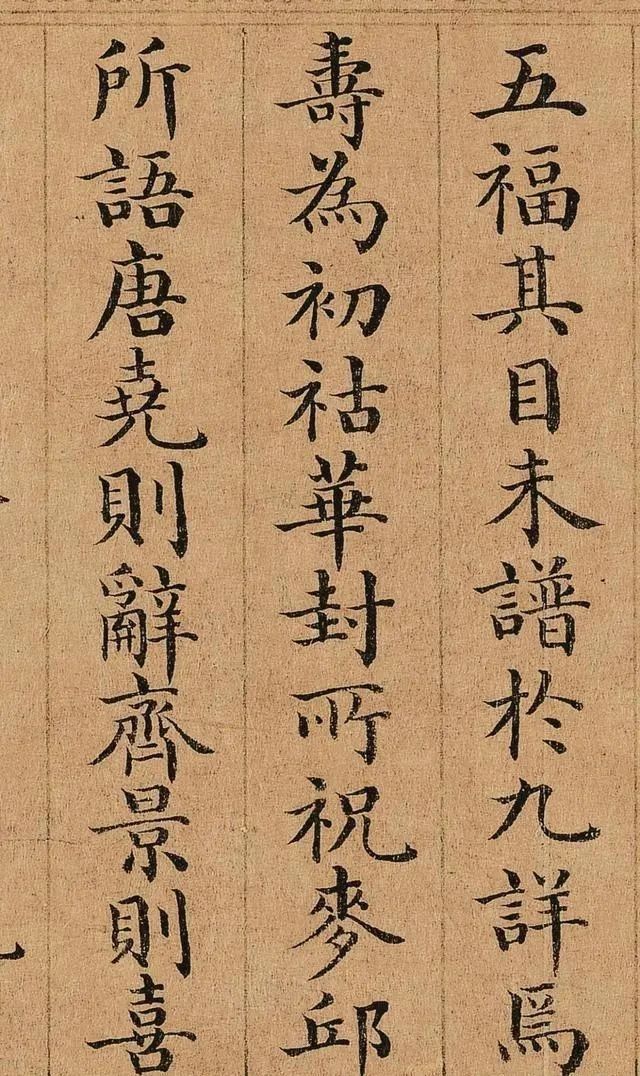 五福其目未譜於九詳爲
壽為初祜華封所祝麥邱
所語唐堯則辭齊景則喜